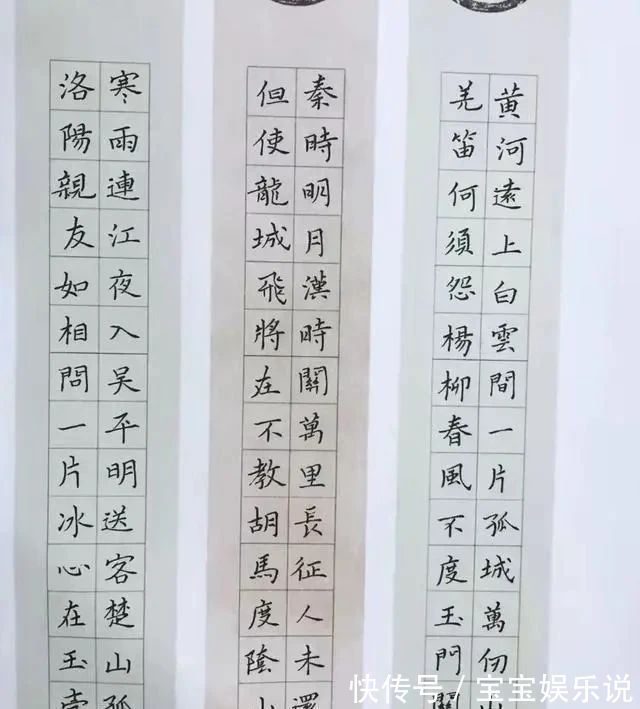 黄河遠上白雲間一片孤城萬仞山
羌笛何須怨楊柳春風不度玉門關
秦時明月漢時關萬里長征人未還
但使龍城飛將在不教胡馬度陰山
寒雨連江夜入吴平明送客楚山孤
洛陽親友如相問一片冰心在玉壺
快传号 / 宝宝娱乐说